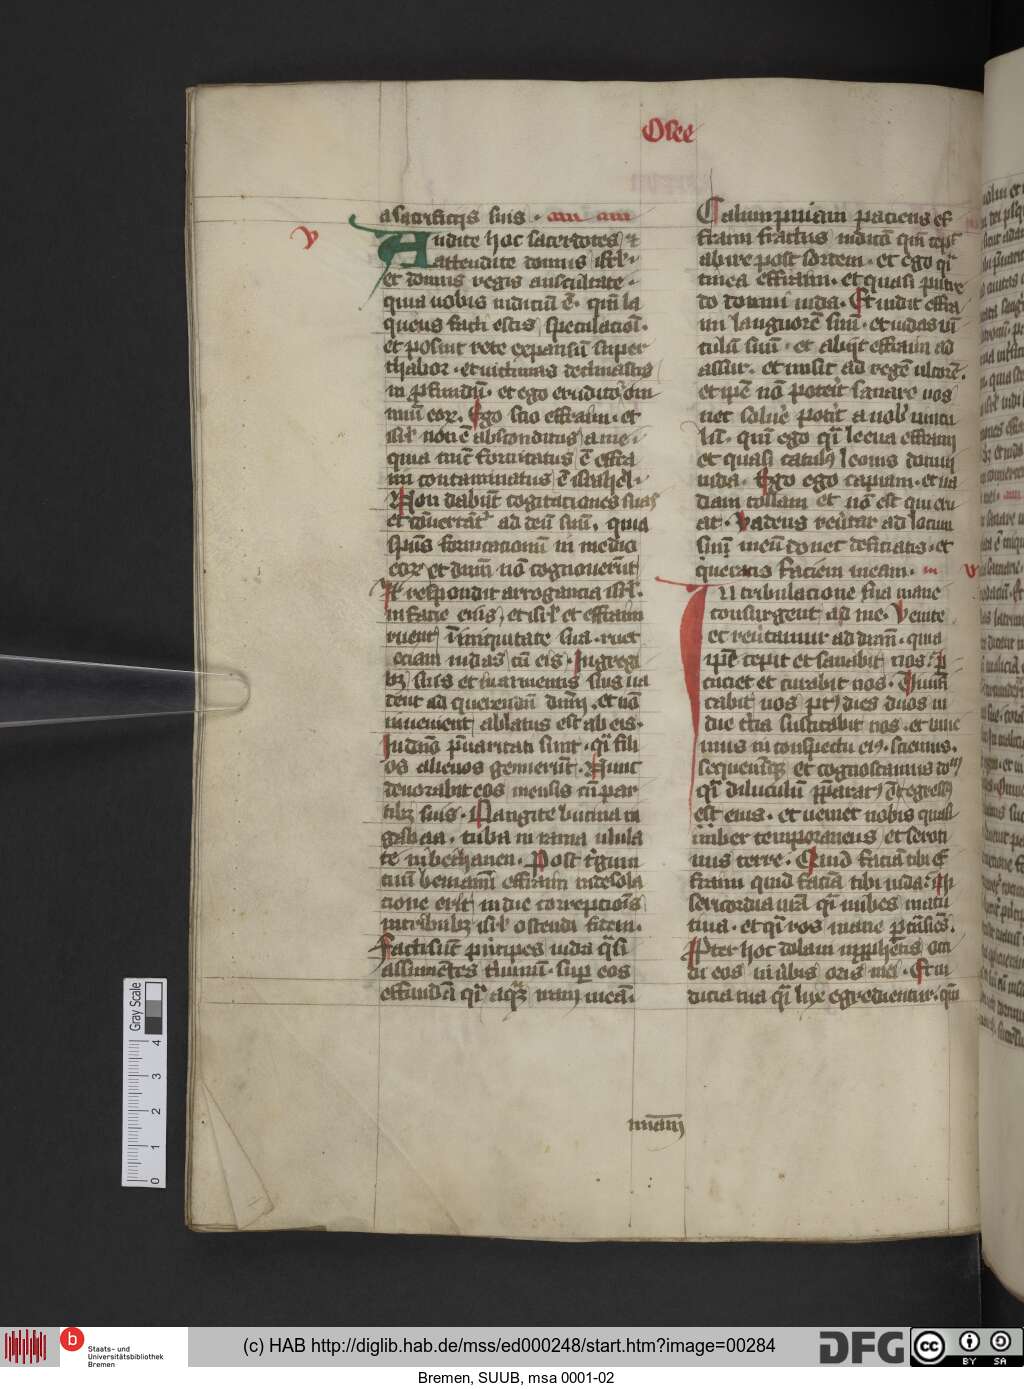 Osee
a sacrificijs suis .
v
Audite hoc sacerdotes et
attendite domus isrl'.
et domus regis auscultate .
quia uobis iudiciu e . qm la
queus facti estis speculacioi .
et posuit rete expansu super
thabor . et uictimas declinastis
in pfundu . et ego eruditor om
niu eor . Ego scio effraim . et
isrl' non e absconditus a me .
quia nuc fornicatus e effra
im contaminatus e israhel .
Non dabut cogitaciones suas
et couertat' ad deu suu , quia
spus fornicacionu in medio
eor et dnm no cognouerut
Et respondit arrogancia isrl'.
in facie eius , et isrl' et effraim
ruent in iniquitate sua . ruet
eciam iudas cu eis . In gregi
bz suis et in armentis suis ua
dent ad querendu dnm . et no
inuenient ablatus est ab eis .
In dno puaricati sunt . qr fili
os alienos genuerut . Nunc
deuorabit eos mensis cu par
tibz suis . Clangite bucina in
gabaa . tuba in rama ulula
te in bethauen . Post tgum
tuu beniami effraim in desola
cione erit in die correpciois
in tribubz isrl' ostendi fidem .
Facti sut principes iuda qsi
assumentes tminu . sup eos
effunda qsi aqz iram mea .
Calumpniam paciens ef
fraim fractus iudicio qm cepit
abire post sortem . et ego qsi
tinea effraim . et quasi putre
do domui iuda . Et uidit effra
im languore suu . et iudas ui
culu suu . et abijt effraim ad
assur . et misit ad rege ultore .
et ipe no poterit sanare uos
nec solue potit a uob' uincu
lu . qm ego qsi leena effraim
et quasi catulus leonis domui
iuda . Ego ego capiam . et ua
dam tollam et no est qui eru
at . Vadens reutar ad locum
suu meu donec deficiatis . et
queratis faciem meam .
vi
In tribulacione sua mane
consurgent ad me . Venite
et reutamur ad dnm . quia
ipe cepit et sanabit nos . per
cuciet et curabit nos . Viuifi
cabit nos pt dies duos in
die tcia suscitabit nos . et viue
mus in conspectu eius . sciemus .
sequemurqz et cognoscamus dom
qsi diluculu pparatus e egressus
est eius . et ueniet nobis quasi
imber temporaneus et seroti
nus terre . Quid facia tibi ef
fraim quid facia tibi iuda . mi
sericordia ura qsi nubes matu
tina . et qsi ros mane ptransiens .
Propter hoc dolaui in prophetis occi
di eos in ubis oris mei . Et iu
dicia tua qsi lux egredientur . qm
miam
Gray Scale
4
3
2
1
0
Staats- und
Universitätsbibliothek
Bremen
(c) HAB http://diglib.hab.de/mss/ed000248/start.htm?image=00284
DFG
cc BY SA
Bremen, SUUB, msa 0001-02